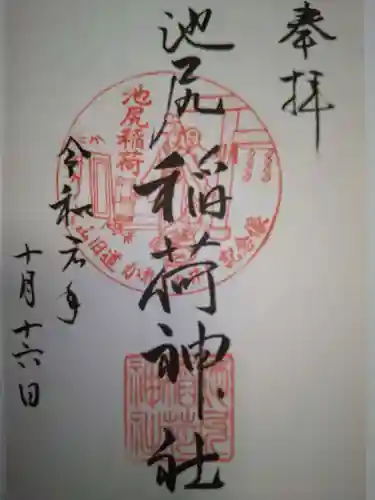 奉拝
池尻稲荷神社
令和元年
十月十六日
池尻稲荷
旧道
記念